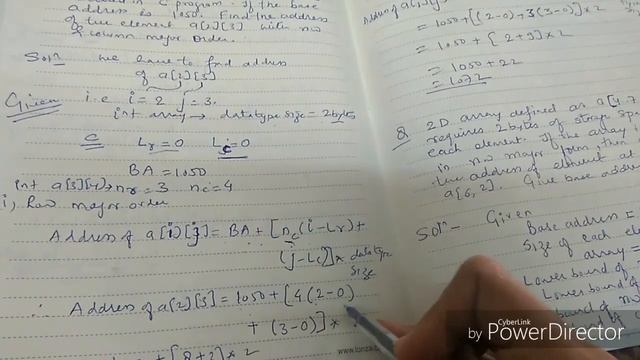 address is 1050. Find the address
of the element a[2][3] with row
& column major order.
Soln we have to find address
of a[2][3]
Given i.e i=2 j=3.
int array → datatype size = 2bytes
C Lr=0 Lc=0
BA = 1050
int a[3][4] → nr=3 nc=4
i, Row major order
Address of a[i][j] = BA + [nc(i-Lr)+
(j-Lc)] × data type
size
∴ Address of a[2][3] = 1050 + [4(2-0)
+ (3-0)] ×
+ [8+3] × 2
= 1050 + [(2-0)+3(3-0)] × 2
= 1050 + [2+9] × 2
= 1050 + 22
= 1072
Q 2D array defined as a[4..7
requires 2 bytes of storage spa
each element. If the array
in row major form, then
the address of element a
a[6,2]. Give base addre
Soln- Given
Base address =
Size of each ele
array
Lower bound of
Lower bound of
bound of
by CyberLink
PowerDirector